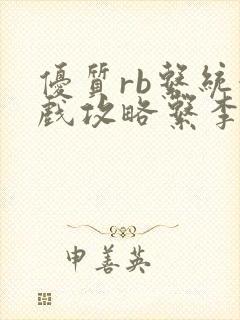 優質rb繫統
戲攻略繫李
申善英